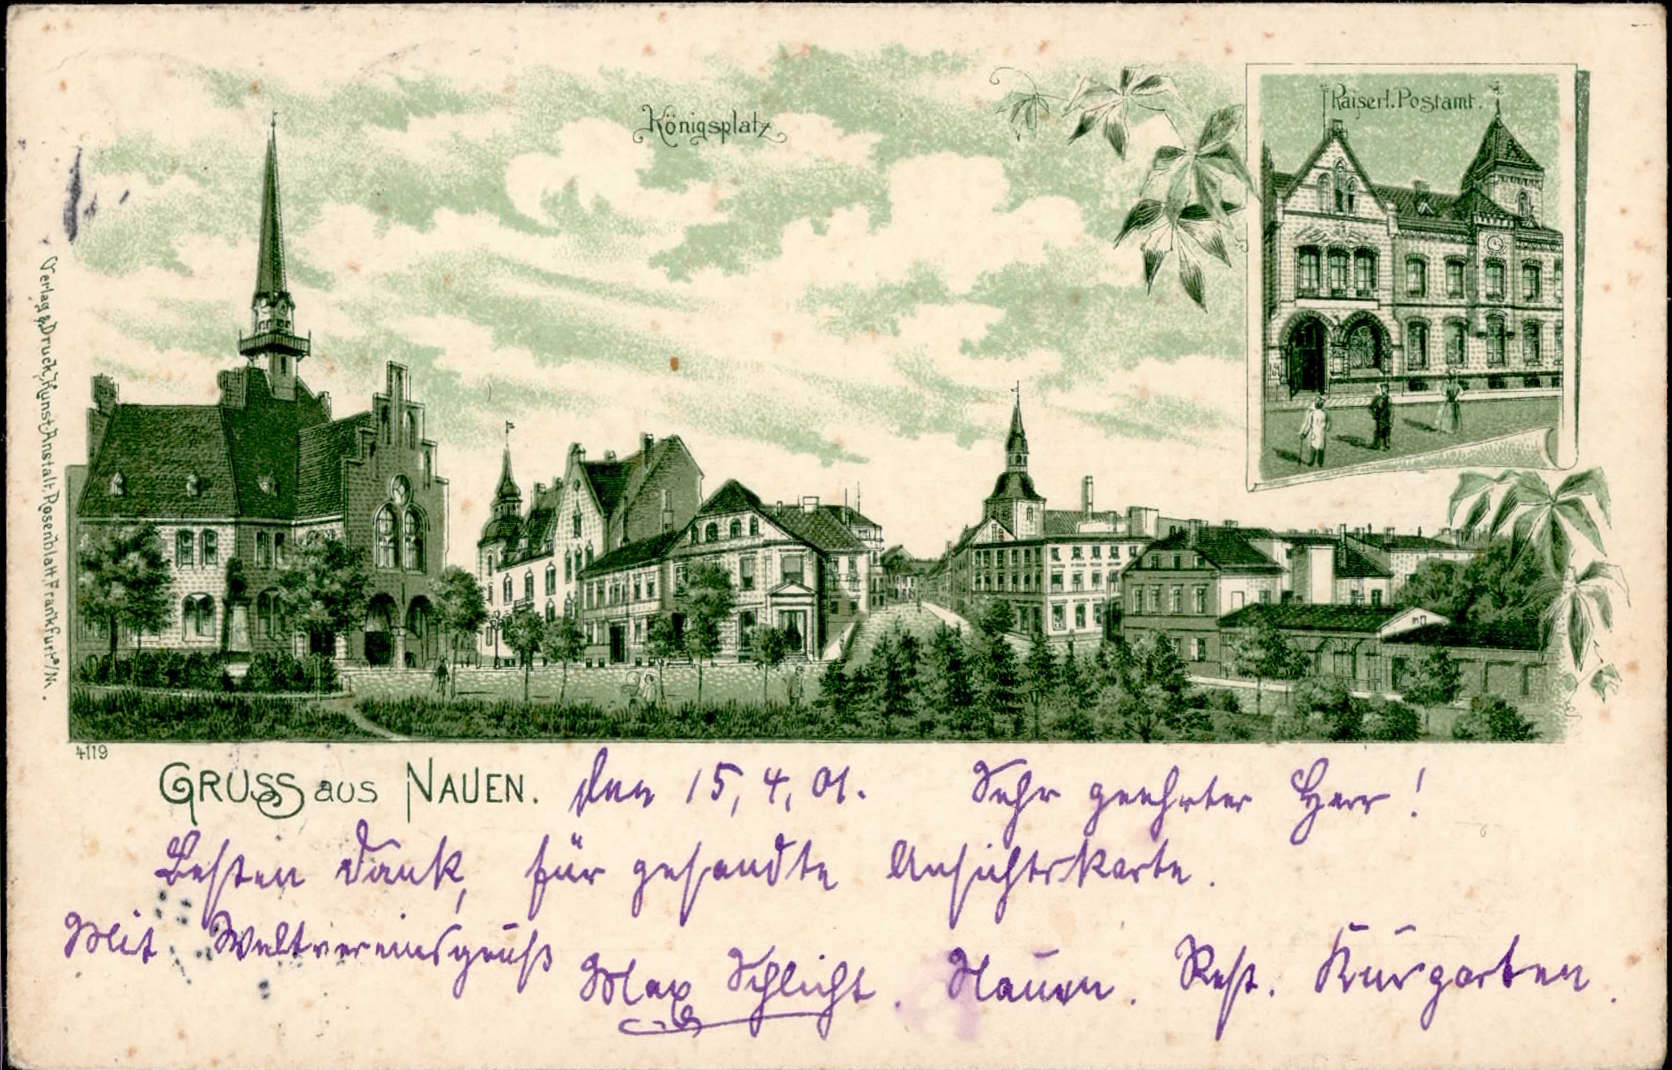 Königsplatz
Kaiserl. Postamt.
Verlag & Druck, Kunst-Anstalt, Rosenblatt Frankfurt a/M.
4119
GRUSS aus NAUEN. den 15, 4, 01. Sehr geehrter Herr!
Besten Dank, für gesandte Ansichtskarte.
Mit Weltvereinsgruß
Max Schlicht. Nauen. Rest. Kurgarten.